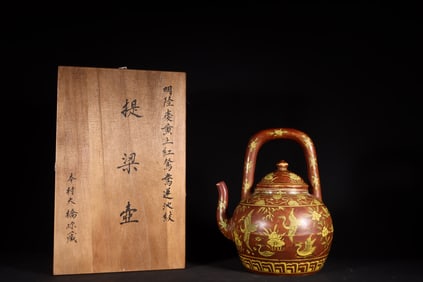 明隆慶黄上紅鴛鴦蓮池紋
提梁壺
木村大橋珍藏